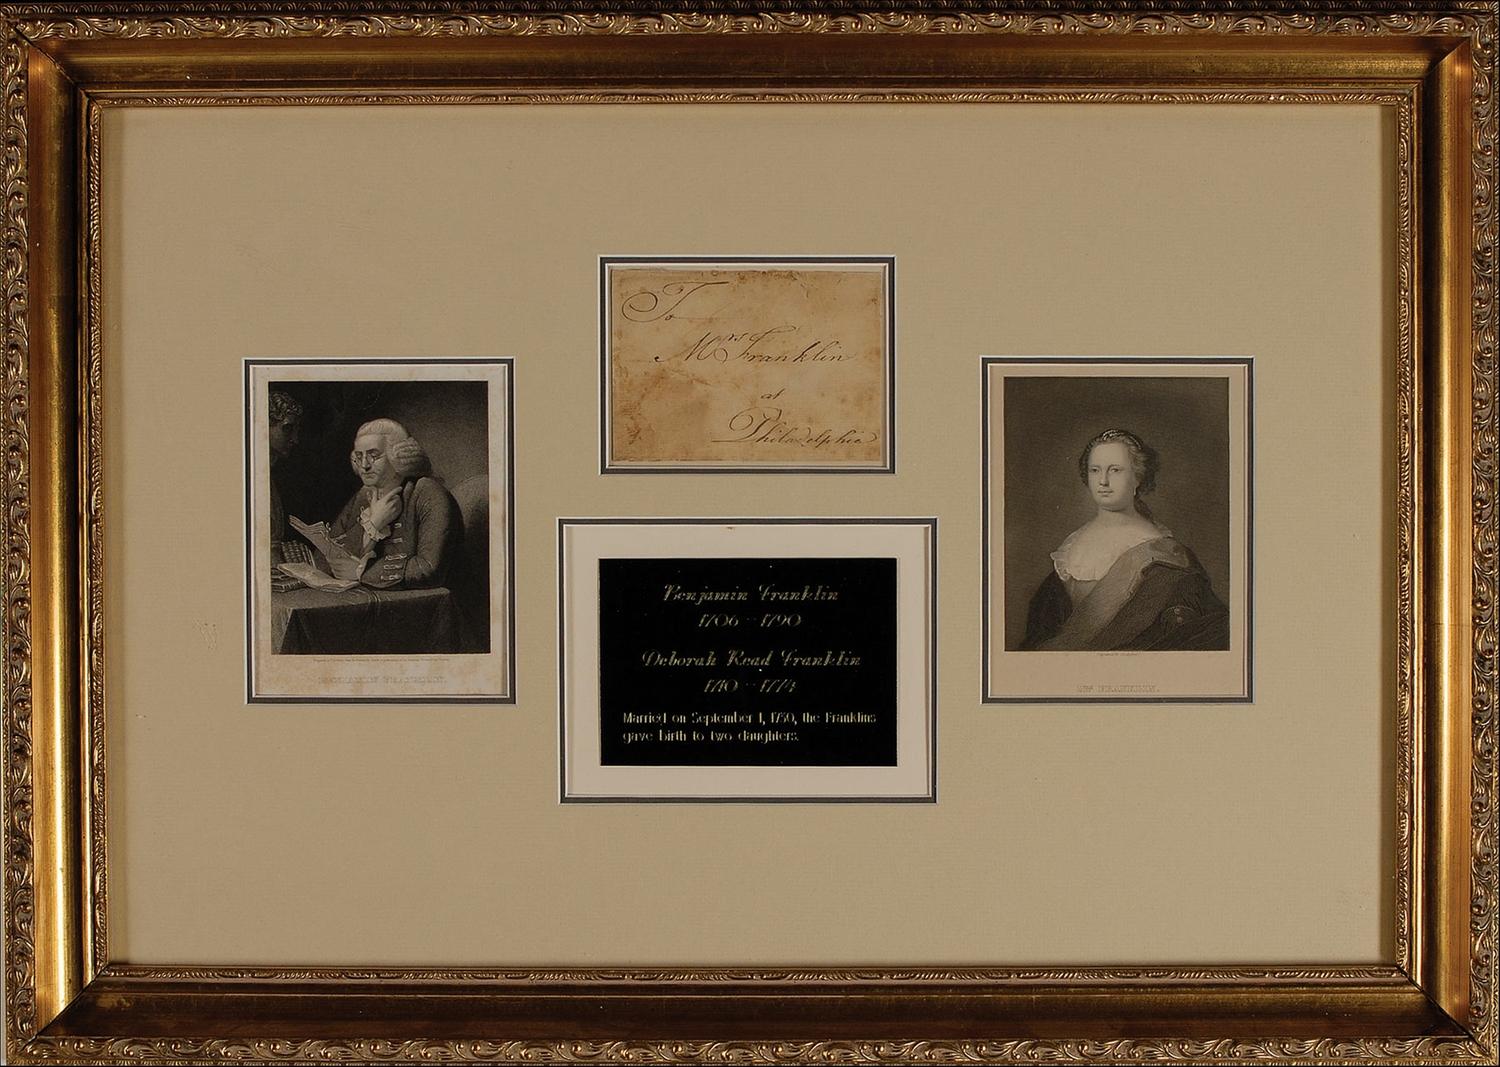 To
Mrs Franklin
at
Philadelphia
BENJAMIN FRANKLIN.
MRS FRANKLIN.
Benjamin Franklin
1706 - 1790
Deborah Read Franklin
1710 - 1774
Married on September 1, 1730, the Franklins
gave birth to two daughters.